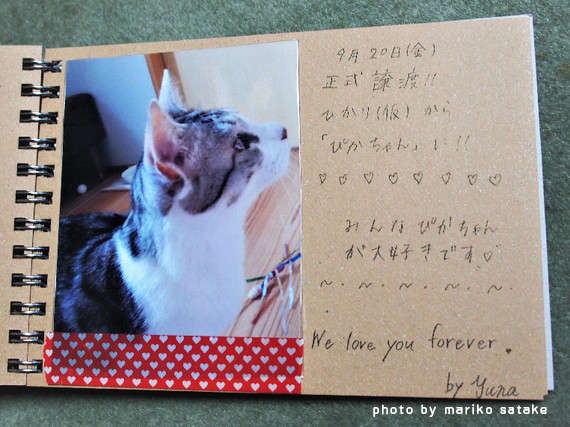 9月20日(金)
正式譲渡!!
ひかり(仮)から
「ぴかちゃん」に!!
♡♡♡♡♡♡♡♡
みんなぴかちゃん
が大好きです♡
~.~.~.~.~.~.
We love you forever.
by Yuna
photo by mariko satake